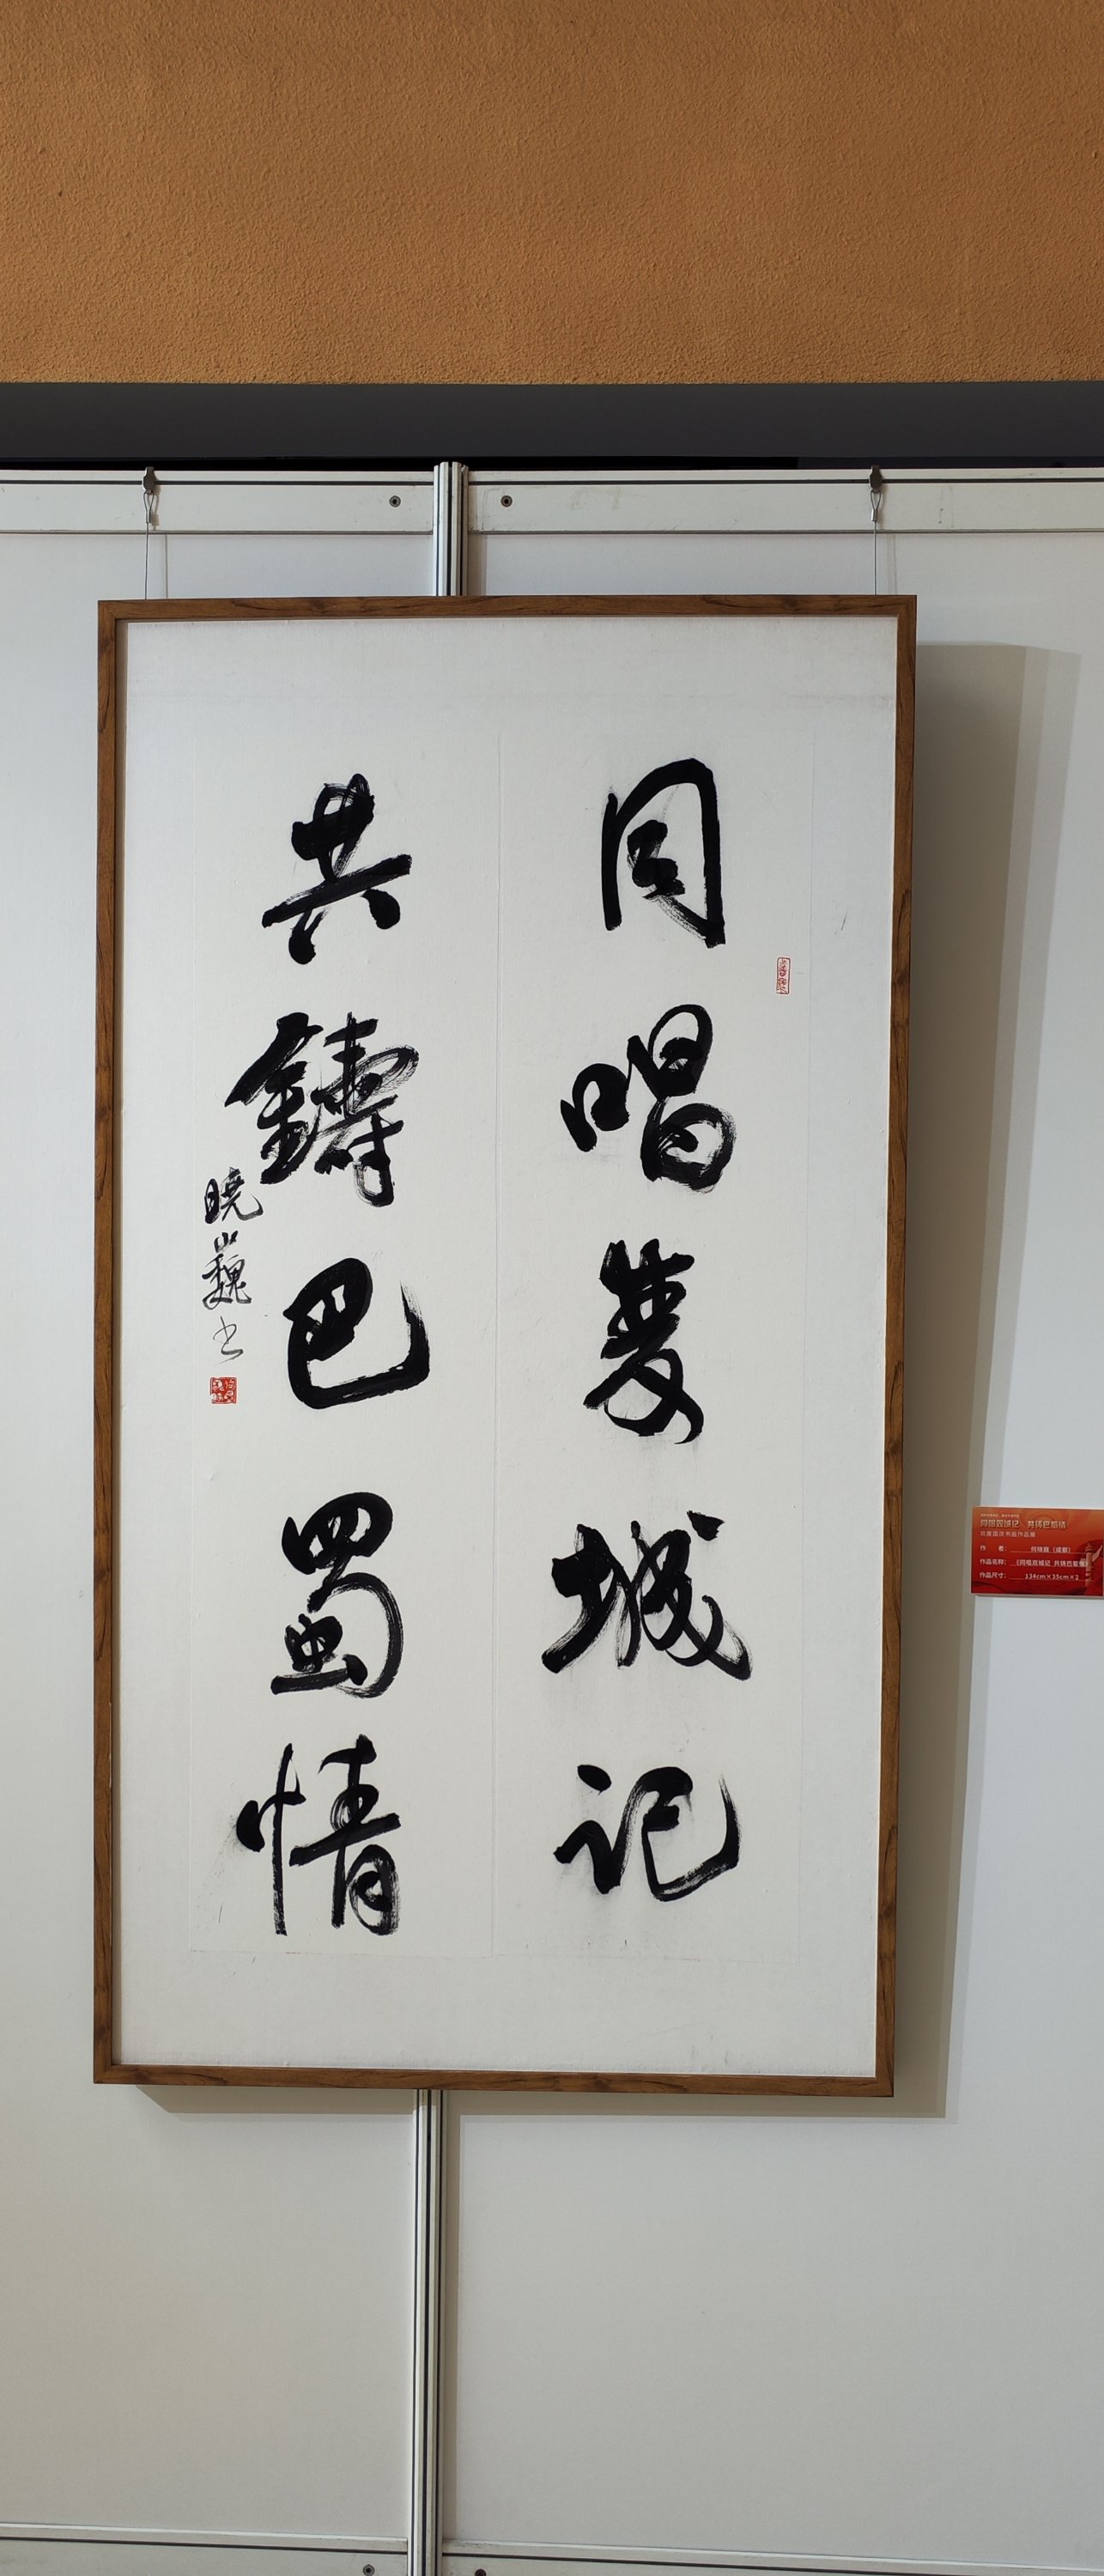 同唱双城记
共鑄巴蜀情
曉巍书
同唱双城记 共铸巴蜀情
欢度国庆书画作品展
作 者: 何晓巍（成都）
作品名称: 《同唱双城记 共铸巴蜀情》
作品尺寸: 134cm×35cm×2